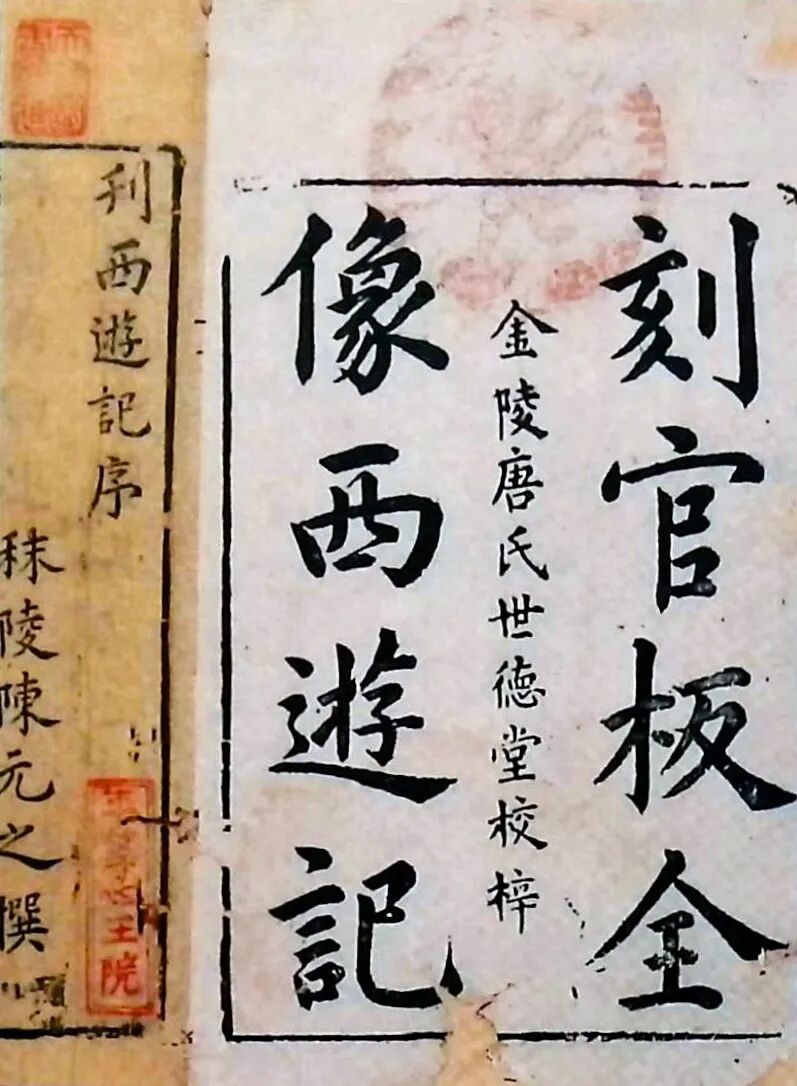 刻官板全
金陵唐氏世德堂校梓
像西遊記
刊西遊記序
秣陵陳元之撰